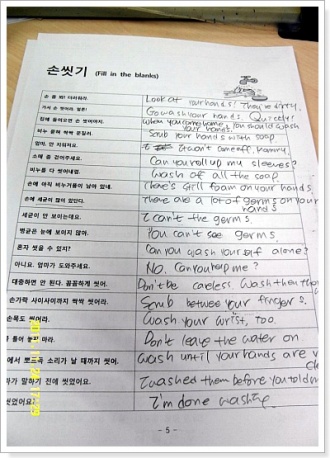 손씻기 (Fill in the blanks)
손 좀 봐! 더러워라. Look at your hands! They're dirty.
가서 손 씻어라. 얼른! Go wash your hands. Quickly!
집에 들어오면 손 씻어야지. When you come home, you should wash your hands.
비누 묻혀 싹싹 문질러. Scrub your hands with soap
엄마, 안 지워져요. It won't come off, Mommy.
소매 좀 걷어주세요. Can you roll up my sleeves?
비누를 다 씻어내렴. Wash off all the soap.
손에 아직 비누거품이 남아 있네. There's still foam on your hands.
손에 세균이 많이 있단다. There are a lot of germs on your hands
세균이 안 보이는데요. I can't the germs.
병균은 눈에 보이지 않아. You can't see germs.
혼자 씻을 수 있지? Can you wash yourself alone?
아니요. 엄마가 도와주세요. No. Can you help me?
대충하면 안 된다. 꼼꼼하게 씻어. Don't be careless. Wash them
손가락 사이사이까지 싹싹 씻어라. Scrub betwee your fingers.
손목도 씻어라. Wash your wrist, too.
틀어 놓지 마라. Don't leave the water on
에서 뽀드득 소리가 날 때까지 씻어. Wash until your hands are
가 말하기 전에 씻었어요. I washed them before you told
씻었어요? I'm done washing
- 5 -